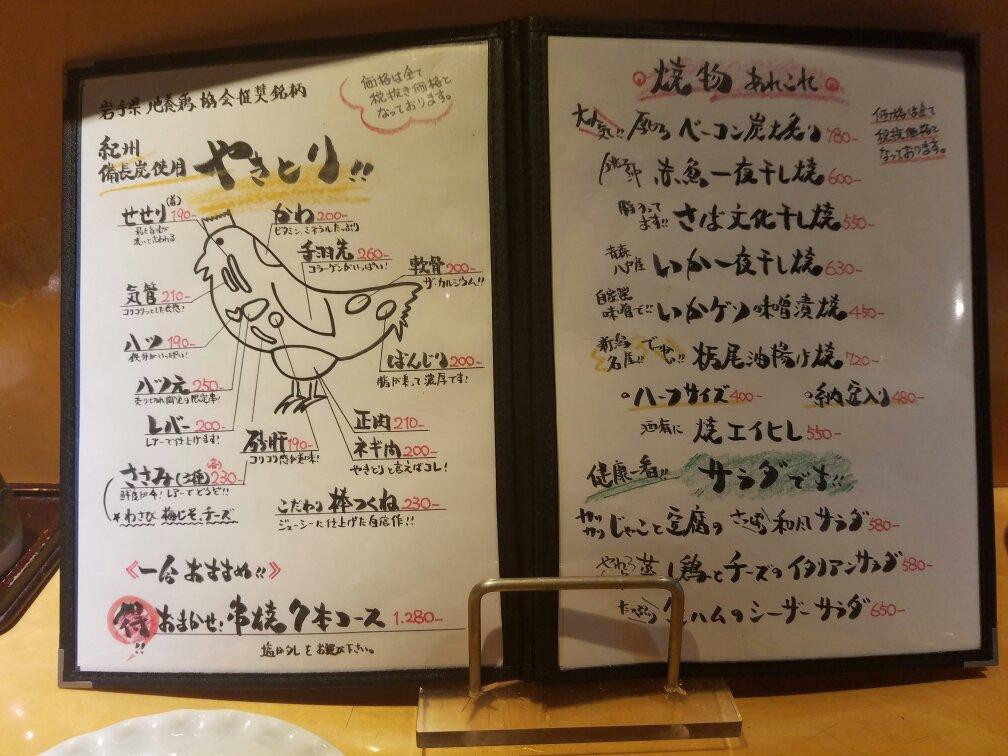 岩手県地養鶏協会推奨銘柄
価格は全て
税抜き価格と
なっております。
紀州
備長炭使用
やきとり!!
せせり(首)190-
かわ200-
ビタミン、ミネラルたっぷり
手羽先260-
コラーゲンがいっぱい!
軟骨200-
ザ・カルシウム!!
気管210-
コリコリッとした食感!
ハツ190-
鉄分がいっぱい!
ハツ元250-
売り切れ御免の限定串!
レバー200-
レアーで仕上げます!
ぼんじり200-
脂が乗って濃厚です!
砂肝190-
コリコリ感が美味!
正肉210-
ネギ肉200-
やきとりと言えばコレ!
ささみ(3種)(各)230-
鮮度が命!レアーでどうぞ!!
★わさび 梅じそ、チーズ
こだわり棒つくね230-
ジューシーに仕上げた自信作!!
《一合おすすめ!!》
得!! おまかせ!串焼7本コース1.280-
塩orタレをお選び下さい。
焼物あれこれ
価格は全て
税抜価格と
なっております。
大人気!! 厚切ベーコン炭火炙り780-
赤魚一夜干し焼600-
脂のってます!! さば文化干し焼550-
青森八戸産 いか一夜干し焼630-
自家製味噌で!! いかゲソ味噌漬焼450-
新潟名産!! でっかい!! 栃尾油揚げ焼720-
○ハーフサイズ400- ○納豆入り480-
酒肴に 焼エイヒレ550-
健康一番!! サラダです!!
カリカリじゃこと豆腐のさっぱり和風サラダ580-
蒸し鶏とチーズのイタリアンサラダ580-
たっぷり生ハムのシーザーサラダ650-